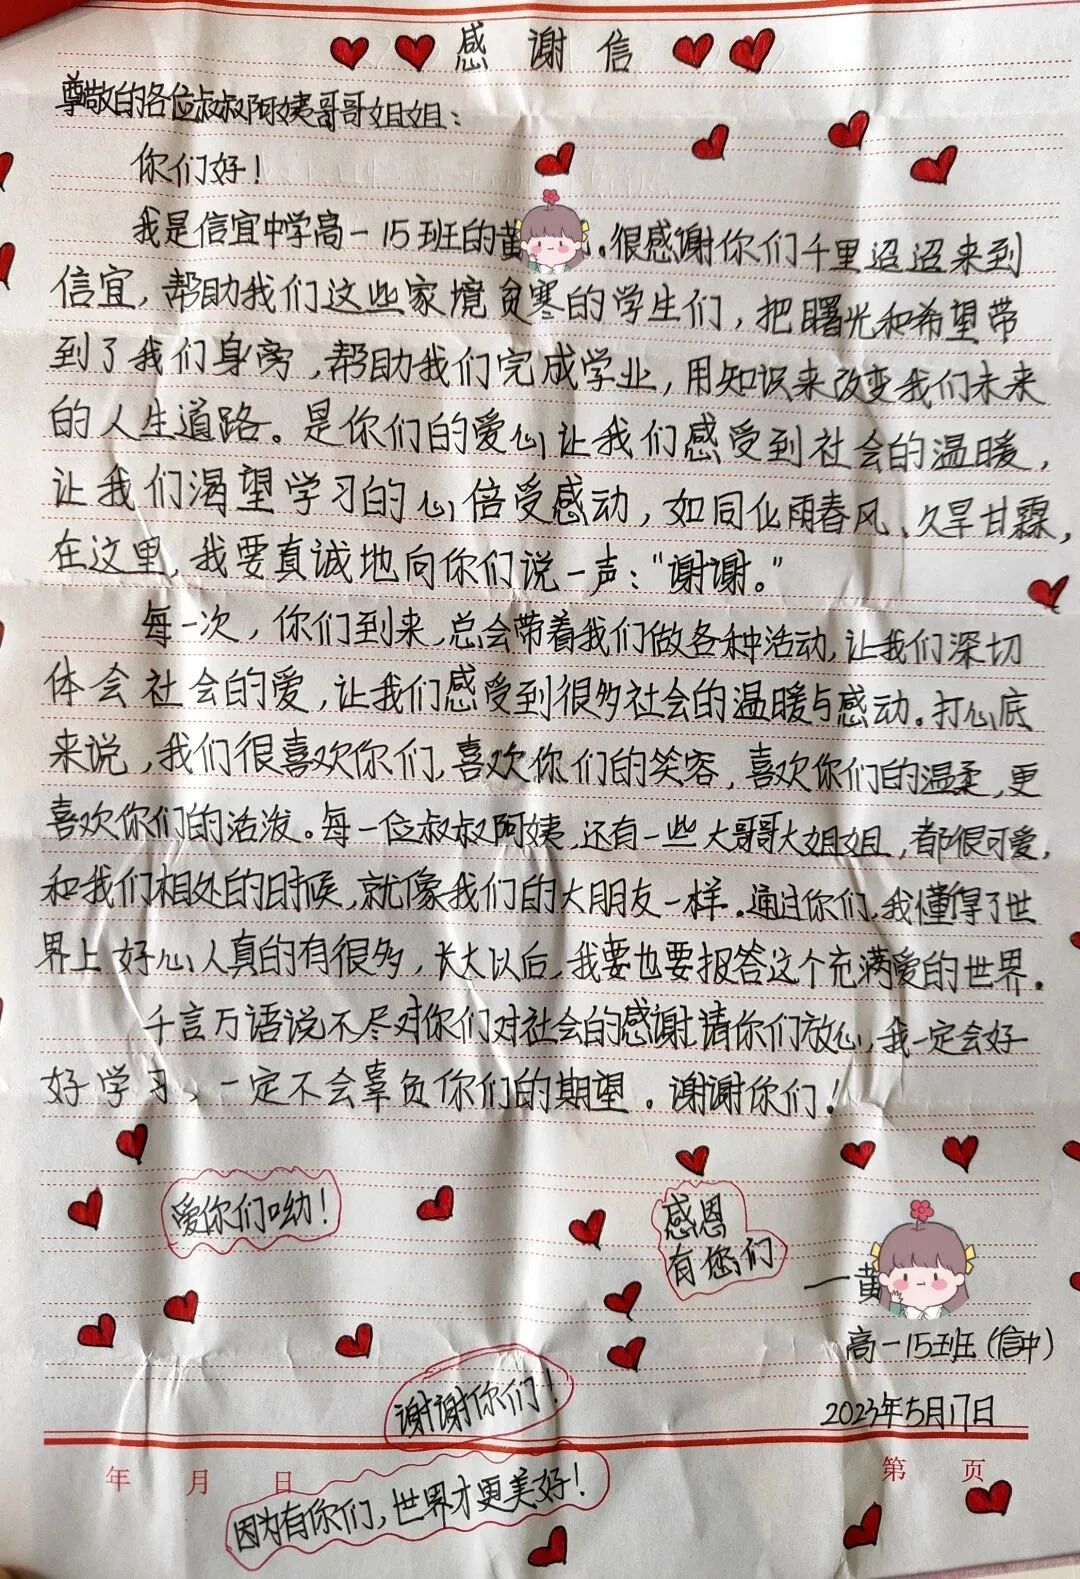 感谢信
尊敬的各位叔叔阿姨哥哥姐姐：
你们好！
我是信宜中学高一15班的黄。很感谢你们千里迢迢来到
信宜，帮助我们这些家境贫寒的学生们，把曙光和希望带
到了我们身旁，帮助我们完成学业，用知识来改变我们未来
的人生道路。是你们的爱心让我们感受到社会的温暖，
让我们渴望学习的心倍受感动，如同化雨春风、久旱甘霖，
在这里，我要真诚地向你们说一声：“谢谢。”
每一次，你们到来，总会带着我们做各种活动，让我们深切
体会社会的爱，让我们感受到很多社会的温暖与感动。打心底
来说，我们很喜欢你们，喜欢你们的笑容，喜欢你们的温柔，更
喜欢你们的活泼。每一位叔叔阿姨，还有一些大哥哥大姐姐，都很可爱，
和我们相处的时候，就像我们的大朋友一样。通过你们，我懂得了世
界上好心人真的有很多，长大以后，我要也要报答这个充满爱的世界。
千言万语说不尽对你们对社会的感谢，请你们放心，我一定会好
好学习，一定不会辜负你们的期望。谢谢你们！
爱你们呦！
感恩
有您们
一黄
高一15班（信中）
谢谢你们！
2023年5月17日
年 月 日
第 页
因为有你们，世界才更美好！